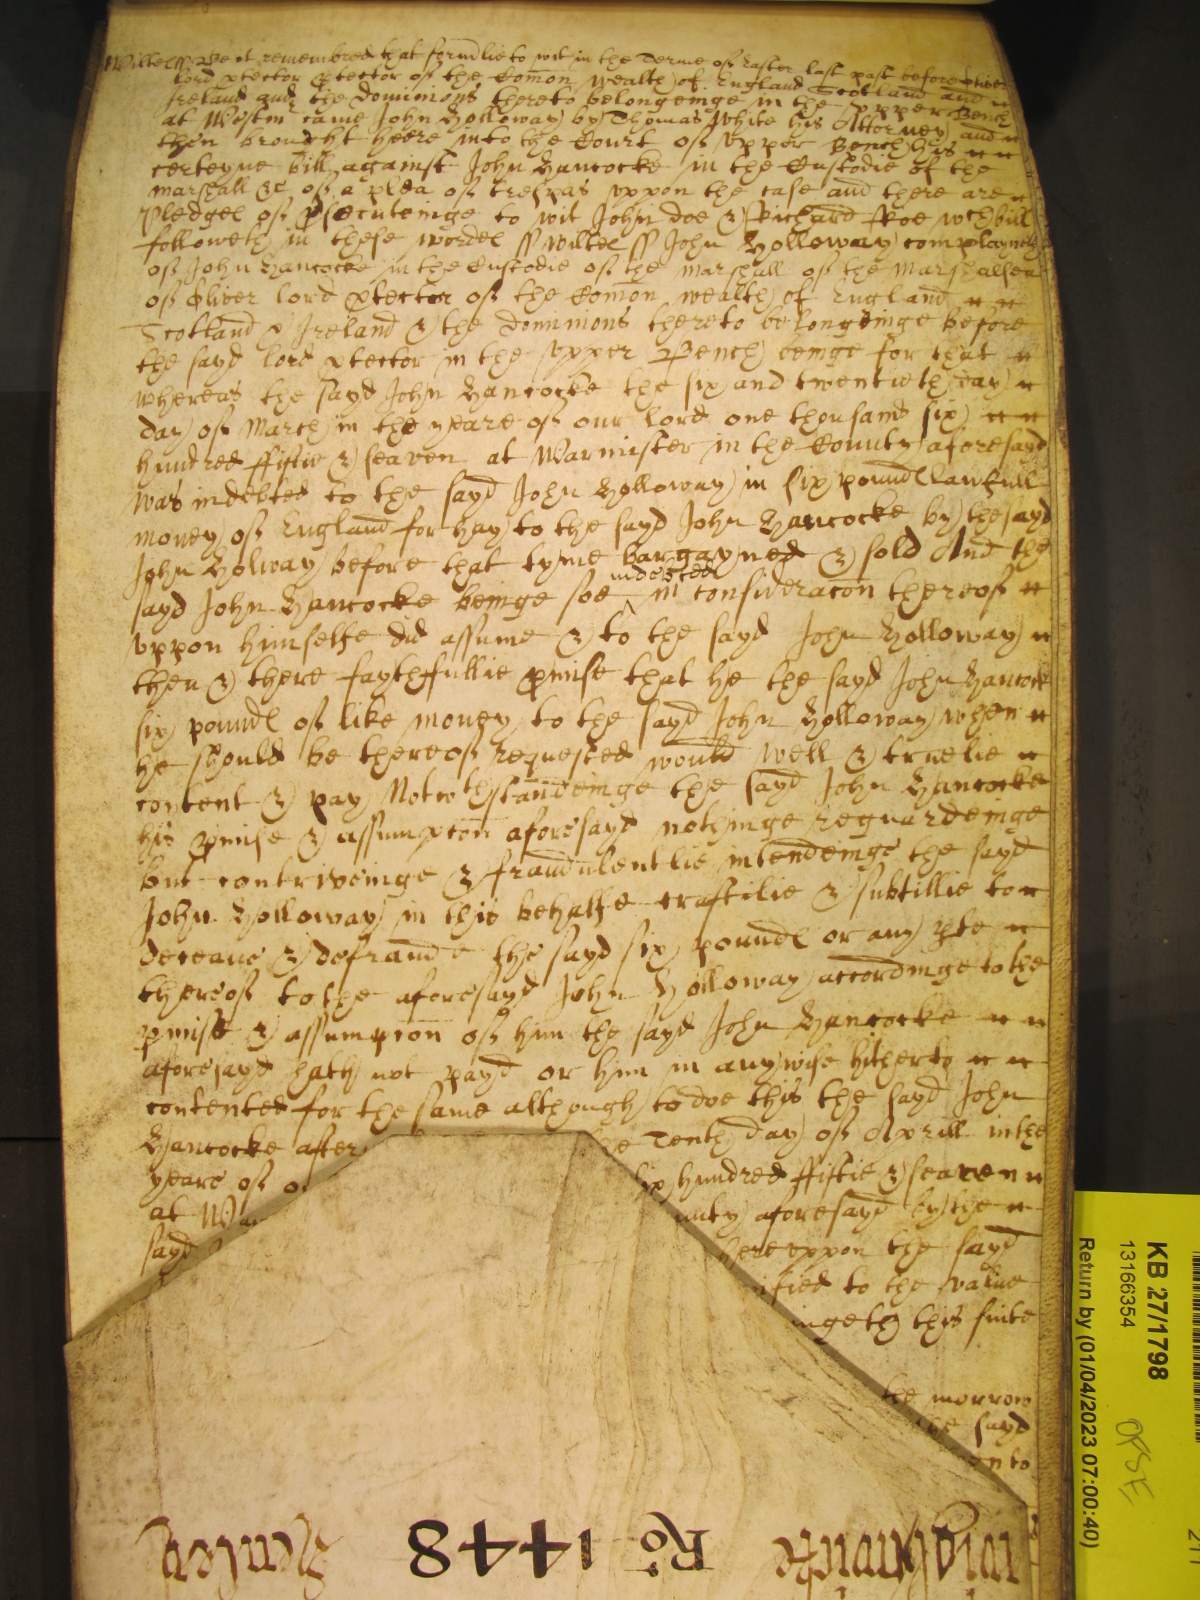 Wiltes ss Be it remembred that formlie to wit in the Terme of Easter last past before Oliver
lord ptector ptector of the Comon wealth of England Scotland and
Ireland and the Dominions thereto belongeinge in the Upper Bench
at Westm came John Holloway by Thomas White his Attorney and
then brought heere into the Court of Upper Bench his
certeyne bill against John Hancocke in the Custodie of the
Marshall &c of a plea of trespas uppon the case and there are
Pledges of psecuteinge to wit John Doe & Richard Roe wch bill
followeth in these wordes ss Wiltes ss John Holloway complayneth
of John Hancocke in the Custodie of the Marshall of the Marshalsea
of Oliver lord ptector of the Comon wealth of England
Scotland & Ireland & the Dominions thereto belongeinge before
the sayd lord ptector in the Upper Bench beinge for that
whereas the sayd John Hancocke the six and twentieth day
day of March in the yeare of our lord one thousand six
hundred fiftie & seaven at Warmister in the County aforesayd
was indebted to the sayd John Holloway in six pounds lawfull
money of England for hay to the sayd John Hancocke by the sayd
John Holway before that tyme bargayned & sold And the
sayd John Hancocke beinge soe indebted in consideracon thereof
uppon himselfe did assume & to the sayd John Holloway
then & there faythfullie pmise that he the sayd John Hancock
six pounds of like money to the sayd John Holloway when
he should be thereof requested would well & truelie
content & pay Notwthstandeinge the sayd John Hancocke
his pmise & assumpcon aforesayd nothinge reguardeinge
but contriveinge & fraudulentlie intendeinge the sayd
John Holloway in this behalfe craftilie & subtillie to
deceave & defraude the sayd six pounds or any pte
thereof to the aforesayd John Holloway accordinge to the
pmise & assumpcon of him the sayd John Hancocke
aforesayd hath not payd or him in any wise hitherto
contented for the same although to doe this the sayd John
Hancocke after the Tenth day of Aprill in the
yeare of o six hundred fiftie & seaven
at Wa unty aforesayd by the
sayd hereuppon the sayd
ified to the value
ingeth this suite
the morrow
the sayd
on to
Ro 1448
KB 27/1798
13166354
Return by (01/04/2023 07:00:40)